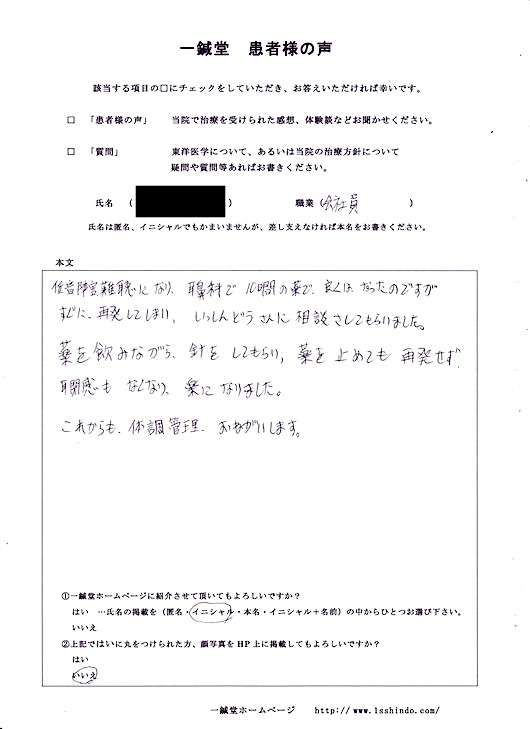 一鍼堂　患者様の声
該当する項目の□にチェックをしていただき、お答えいただければ幸いです。
□　「患者様の声」　当院で治療を受けられた感想、体験談などお聞かせください。
□　「質問」　東洋医学について、あるいは当院の治療方針について
疑問や質問等あればお書きください。
氏名　(　　)　職業　(会社員　)
氏名は匿名、イニシャルでもかまいませんが、差し支えなければ本名をお書きください。
本文
低音障害難聴になり、耳鼻科で10日間の薬で、良くは なったのですが
すぐに、再発してしまい、いっしんどうさんに 相談させてもらいました。
薬を飲みながら、針を してもらい、薬を 止めても 再発せず
耳閉感も なくなり、楽に なりました。
これからも、体調管理、おねがいします。
①一鍼堂ホームページに紹介させて頂いてもよろしいですか？
はい　…氏名の掲載を（匿名・イニシャル・本名・イニシャル＋名前）の中からひとつお選び下さい。
いいえ
②上記ではいに丸をつけられた方、顔写真をHP上に掲載してもよろしいですか？
はい
いいえ
一鍼堂ホームページ　http://www.1sshindo.com/